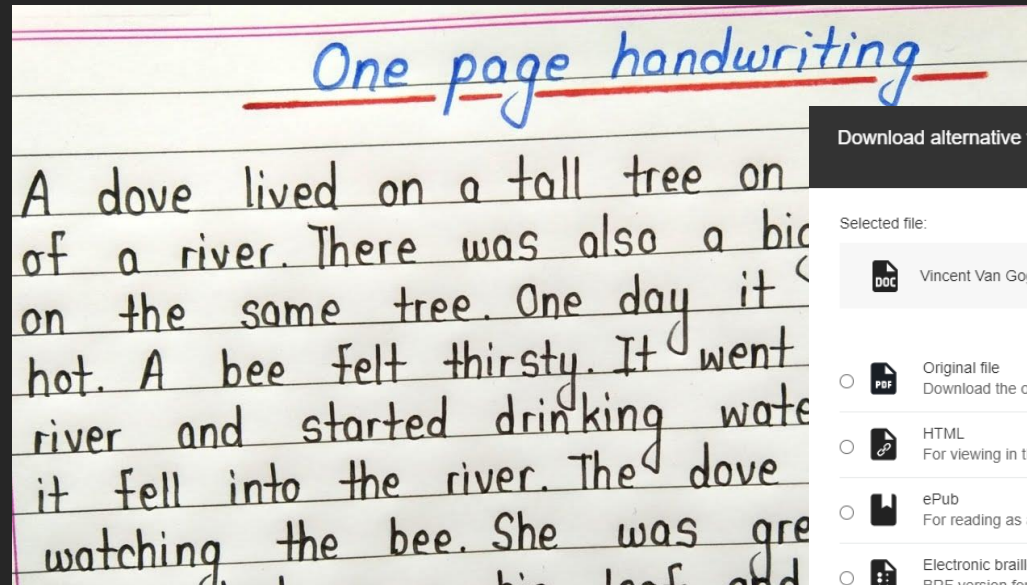 One page handwriting
A dove lived on a tall tree on
of a river. There was also a
on the same tree. One day it
hot. A bee felt thirsty. It went
river and started drinking
it fell into the river. The dove
watching the bee. She was
Download alternative
Selected file:
DOC
Vincent Van
Original file
PDF
Download the
HTML
For viewing in
ePub
For reading as
Electronic